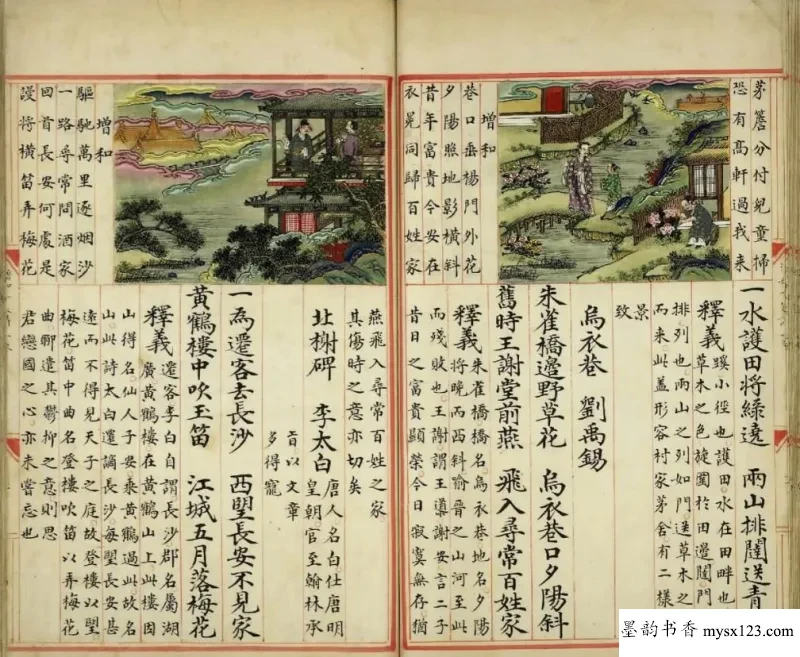 茅簷分付兒童掃
恐有高軒過我來
增和
巷口垂楊門外花
夕陽照地影橫斜
昔年富貴今安在
衣冕同歸百姓家
一水護田將綠遶 兩山排闥送青
釋義 蹊小徑也護田水在田畔也
草木之色旋圍於田邊闥門
排列也兩山之列如門送草木之
而來此蓋形容村家茅舍有二樣
景致
烏衣巷 劉禹錫
朱雀橋邊野草花 烏衣巷口夕陽斜
舊時王謝堂前燕 飛入尋常百姓家
釋義 朱雀橋橋名烏衣巷地名夕陽
將晚而西斜喻晉之山河至此
而殘敗也王謝謂王導謝安言二子
昔日之富貴顯榮今日寂寞無存猶
增和
驅馳萬里逐烟沙
一路尋常問酒家
回首長安何處是
謾將橫笛弄梅花
燕飛入尋常百姓之家
其傷時之意亦切矣
北榭碑 李太白 唐人名白仕唐明
皇朝官至翰林承
旨以文章
多得寵
一為遷客去長沙 西望長安不見家
黃鶴樓中吹玉笛 江城五月落梅花
釋義 遷客李白自謂長沙郡名屬湖
廣黃鶴樓在黃鶴山上此樓因
山得名仙人子安乘黃鶴過此故名
山此詩太白遷謫長沙每望長安甚
遠而不得見天子之庭故登樓以望
梅花笛中曲名登樓吹笛以弄梅花
曲聊遣其鬱抑之意則思
君戀國之心亦未嘗忘也
墨韵书香 mysx123.com